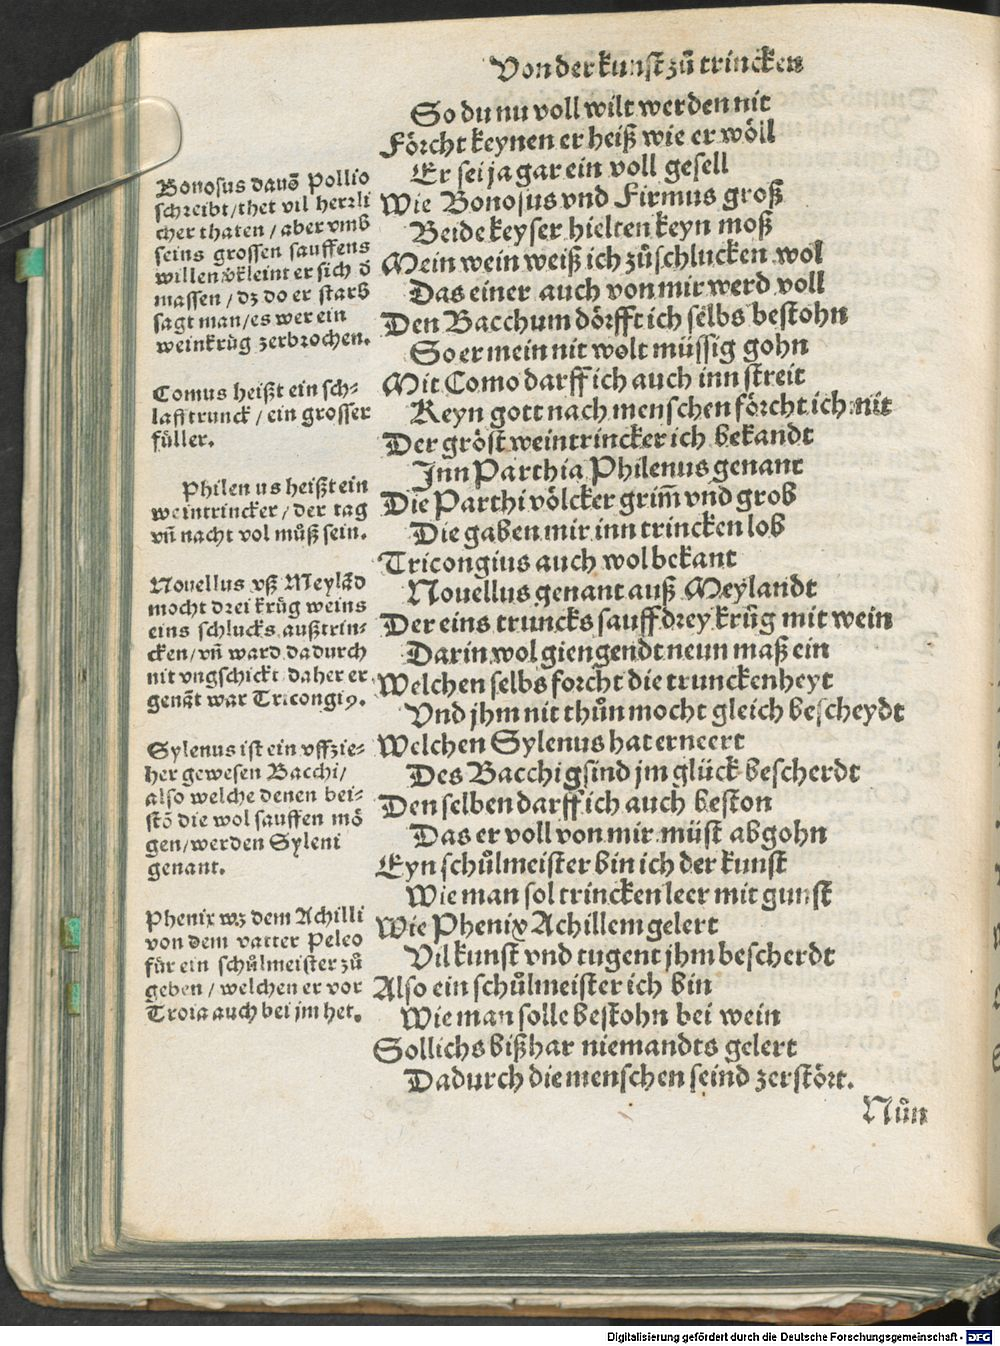 Von der kunst zů trincken
So du nu voll wilt werden nit
Förcht keynen er heiß wie er wöll
Er sei ja gar ein voll gesell
Wie Bonosus vnd Firmus groß
Beide keyser hielten keyn moß
Mein wein weiß ich zůschlucken wol
Das einer auch von mir werd voll
Den Bacchum dörfft ich selbs bestohn
So er mein nit wolt müssig gohn
Mit Como darff ich auch inn streit
Keyn gott nach menschen förcht ich nit
Der gröst weintrincker ich bekandt
Inn Parthia Philenus genant
Die Parthi völcker grim̃ vnd grob
Die gaben mir inn trincken lob
Tricongius auch wol bekant
Nouellus genant auß Meylandt
Der eins truncks sauff drey krůg mit wein
Darin wol giengendt neun maß ein
Welchen selbs forcht die trunckenheyt
Vnd jhm nit thůn mocht gleich bescheydt
Welchen Sylenus hat erneert
Des Bacchi gsind jm glück bescherdt
Den selben darff ich auch beston
Das er voll von mir müst abgohn
Eyn schůlmeister bin ich der kunst
Wie man sol trincken leer mit gunst
Wie Phenix Achillem gelert
Vil kunst vnd tugent jhm bescherdt
Also ein schůlmeister ich bin
Wie man solle bestohn bei wein
Sollichs bißhar niemandts gelert
Dadurch die menschen seind zerstört.
Nůn
Bonosus dauõ Pollio
schreibt/thet vil herrli
cher thaten/aber vmb
seins grossen sauffens
willen v̄kleint er sich d̄
massen/dz do er starb
sagt man/es wer ein
weinkrůg zerbrochen.
Comus heißt ein sch-
lafftrunck/ein grosser
füller.
Philenus heißt ein
weintrincker/der tag
vñ nacht vol můß sein.
Nouellus vß Meylãd
mocht drei krůg weins
eins schlucks außtrin-
cken/vñ ward dadurch
nit vngschickt daher er
genãt war Tricongiꝰ.
Sylenus ist ein vffzie-
her gewesen Bacchi/
also welche denen bei-
stõ die wol sauffen mö
gen/werden Syleni
genant.
Phenix wz dem Achilli
von dem vatter Peleo
für ein schůlmeister zů
geben/welchen er vor
Troia auch bei jm het.
Digitalisierung gefördert durch die Deutsche Forschungsgemeinschaft - DFG